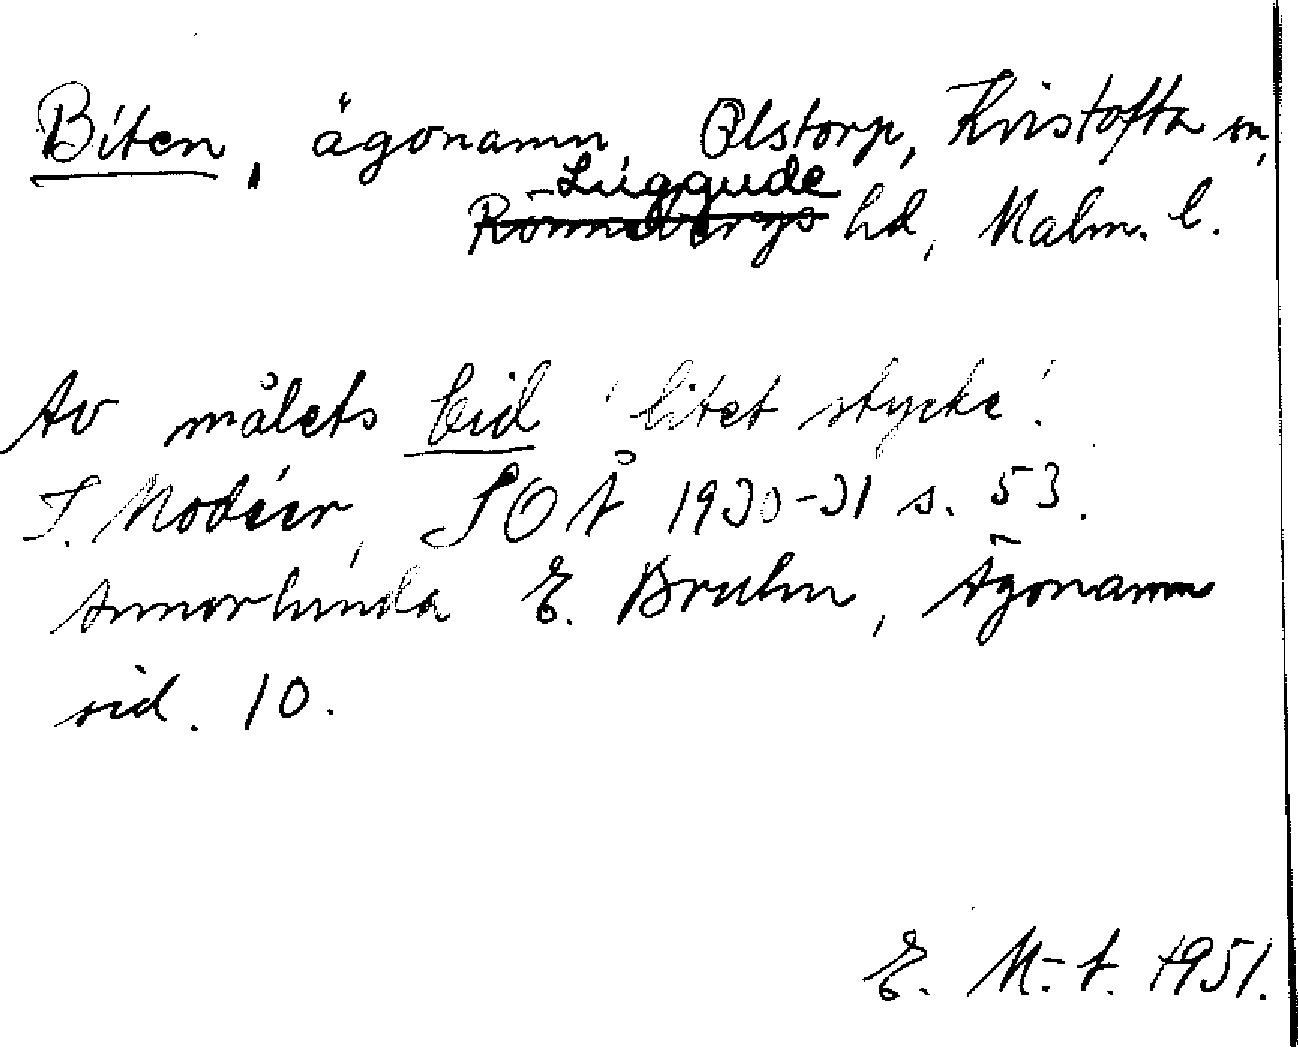 Biten, ägonamn Olstorp, Kristofta sn,
Luggude
Rönnebergs hd, Malm. l.
Av målets bid 'litet stycke'.
I. Modéer, SOÅ 1930-31 s. 53.
Annorlunda E. Bruhn, Ägonamn
sid. 10.
E. M.-A. 1951.